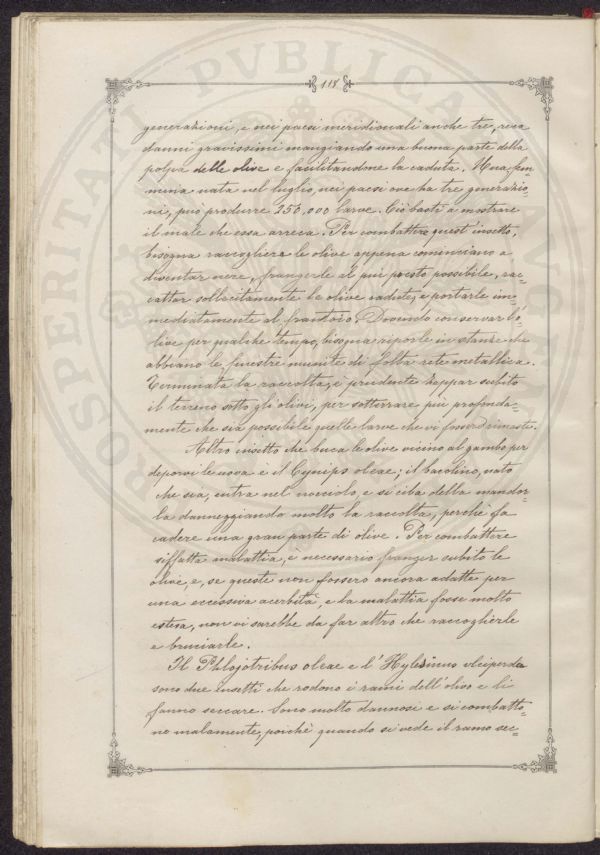 118
generazioni, e nei paesi meridionali anche tre, reca
danni gravissimi mangiando una buona parte della
polpa delle olive e facilitandone la caduta. Una fem=
mina nata nel luglio, nei paesi ove ha tre generazio=
ni, può produrre 250,000 larve. Ciò basti a mostrare
il male che essa arreca. Per combattere quest'insetto,
bisogna raccogliere le olive appena cominciano a
diventar nere, frangerle al più presto possibile, rac=
cattar sollecitamente le olive cadute, e portarle im=
mediatamente al frantoio. Dovendo conservar l'o=
live per qualche tempo, bisogna riporle in stanze che
abbiano le finestre munite di folta rete metallica.
Terminata la raccolta, è prudente zappar subito
il terreno sotto gli olivi, per sotterrare più profonda=
mente che sia possibile quelle larve che vi fossero rimaste.
Altro insetto che buca le olive vicino al gambo per
deporvi le uova è il Cynips oleae; il bacolino, nato
che sia, entra nel nocciolo, e si ciba della mandor=
la danneggiando molto la raccolta, perchè fa
cadere una gran parte di olive. Per combattere
siffatta malattia, è necessario franger subito le
olive, e, se queste non fossero ancora adatte per
una eccessiva acerbità, e la malattia fosse molto
estesa, non vi sarebbe da far altro che raccoglierle
e bruciarle.
Il Phlojotribus oleae e l'Hylesinus oleiperda
sono due insetti che rodono i rami dell'olivo e li
fanno seccare. Sono molto dannosi e si combatto=
no malamente, poichè quando si vede il ramo sec=
PROSPERITATI PVBLICAE AVGENDAE